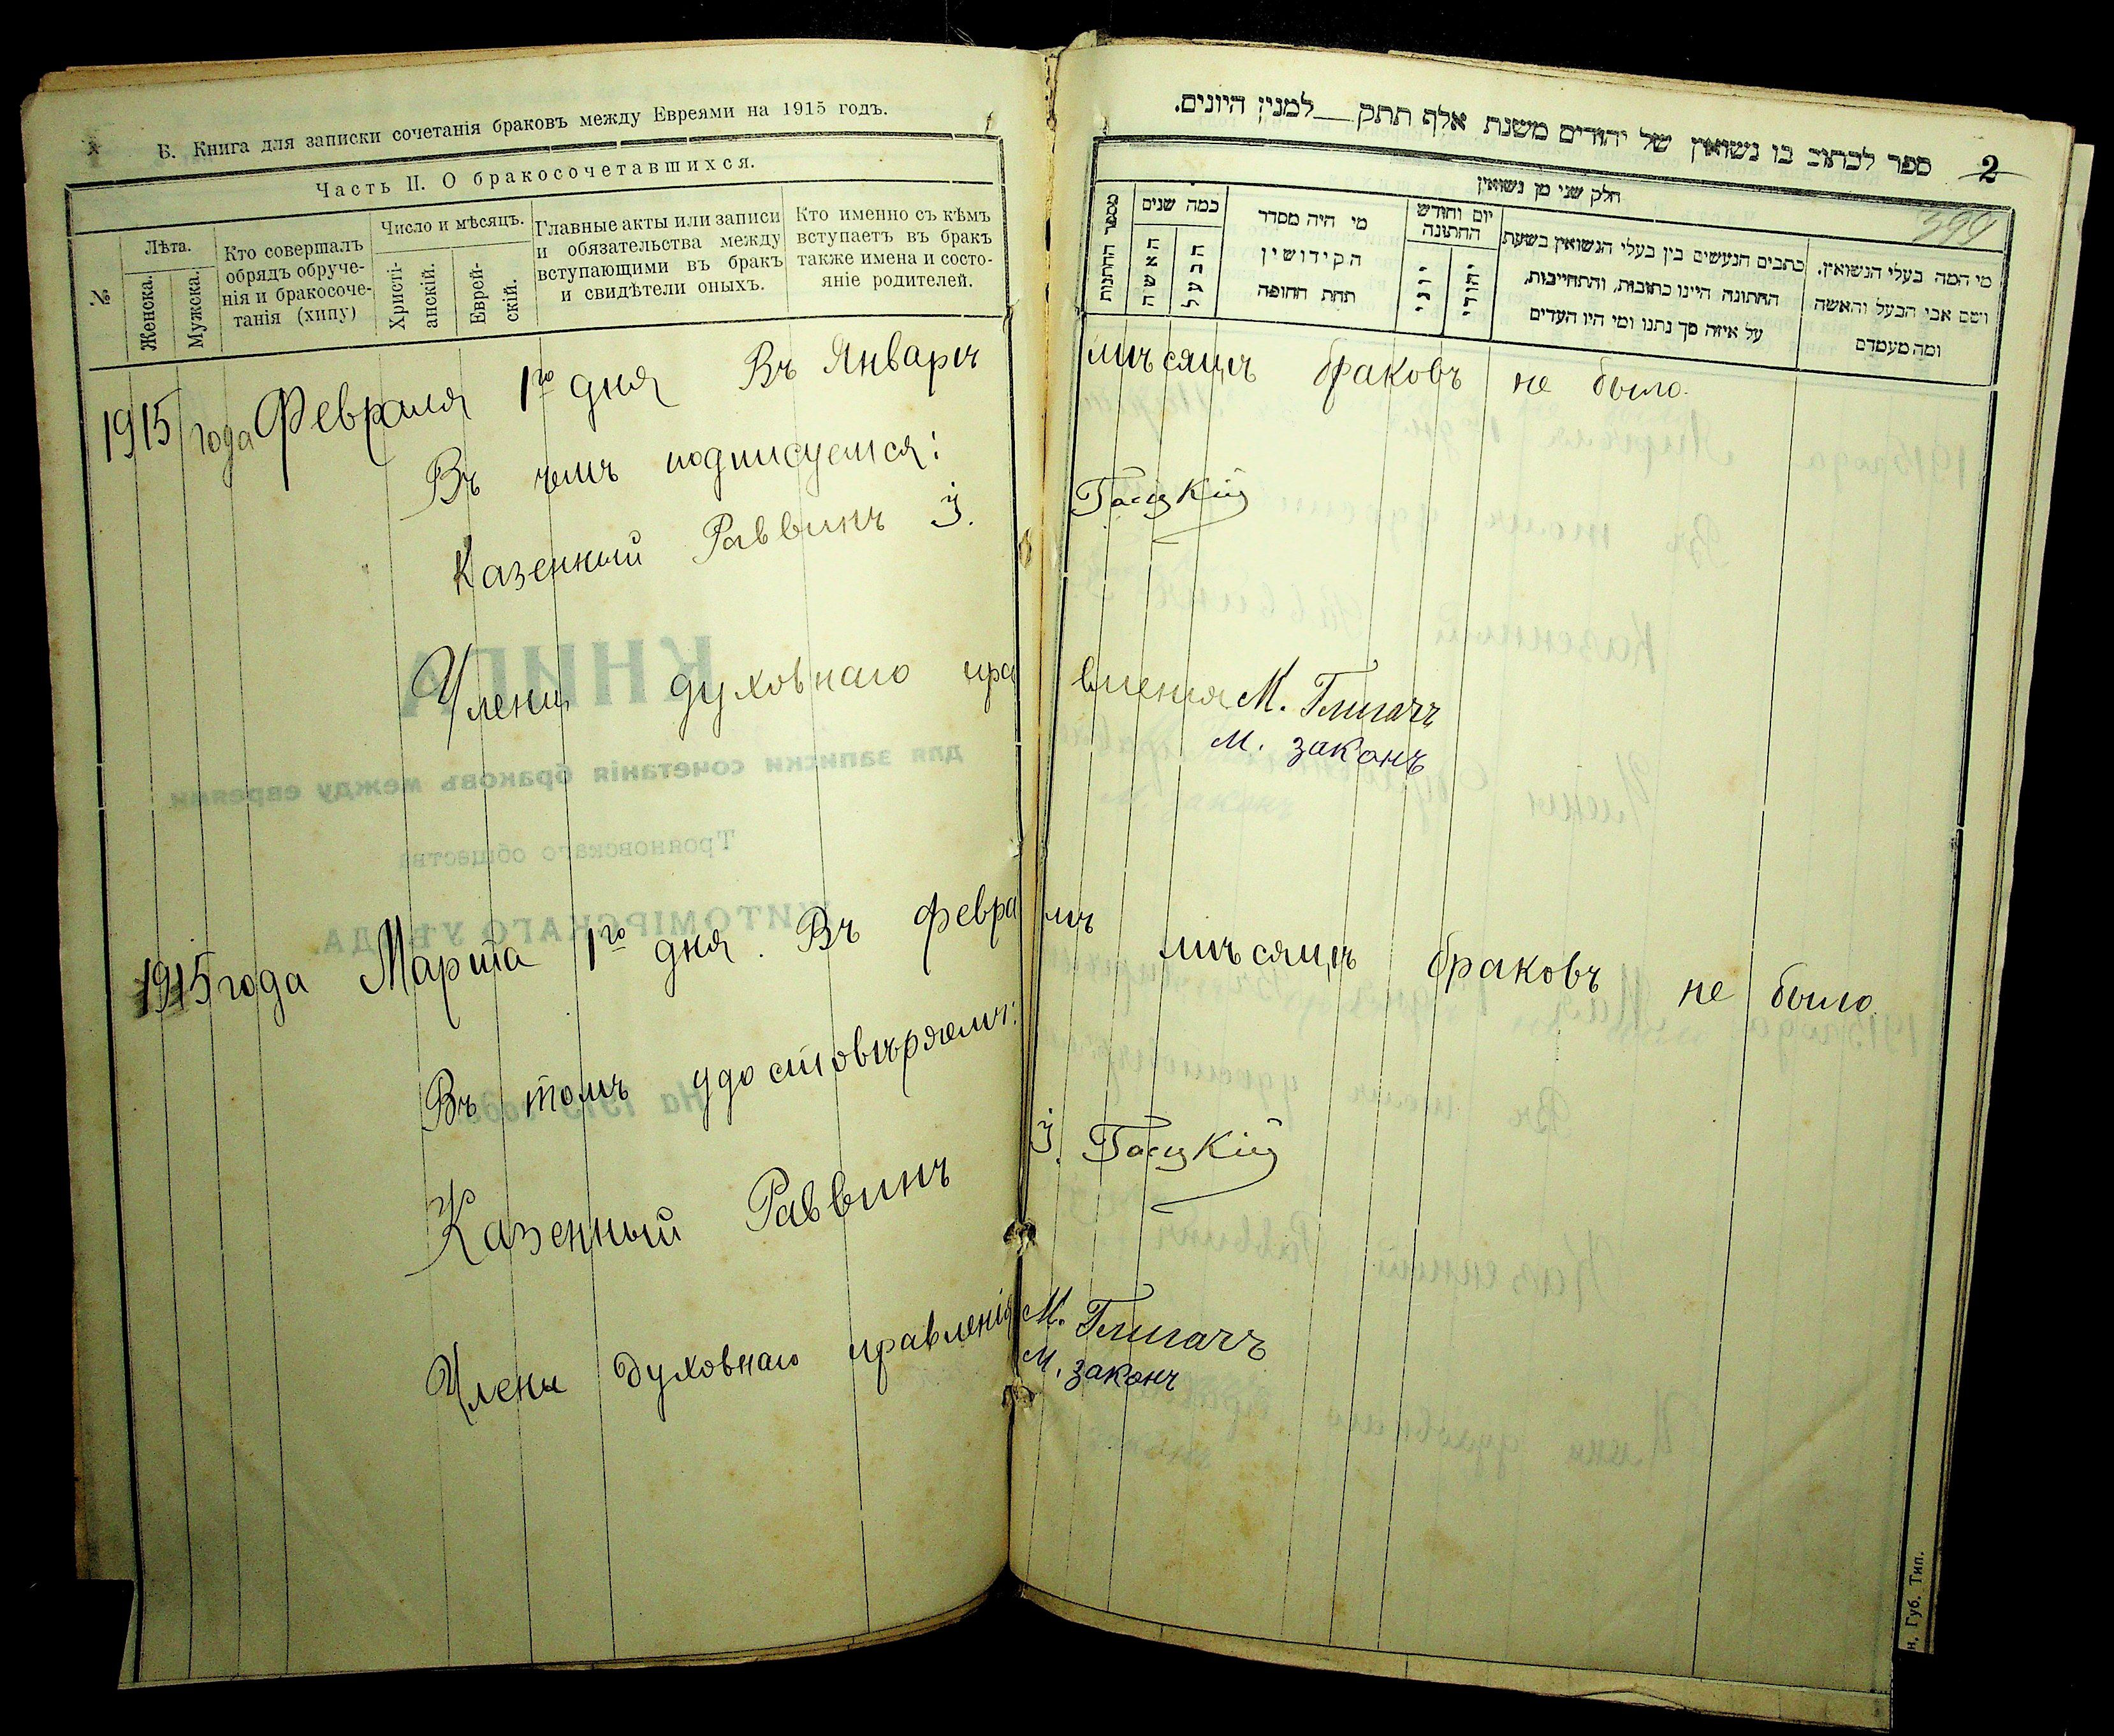 Б. Книга для записки сочетанія браковъ между Евреями на 1915 годъ.
Часть II. О бракосочетавшихся.
№
Лѣта.
Женска.
Мужска.
Кто совершалъ
обрядъ обруче-
нія и бракосоче-
танія (хипу)
Число и мѣсяцъ.
Христі-
анскій.
Еврей-
скій.
Главные акты или записи
и обязательства между
вступающими въ бракъ
и свидѣтели оныхъ.
Кто именно съ кѣмъ
вступаетъ въ бракъ
также имена и состо-
яніе родителей.
ספר לכתוב בו נשואין של יהודים משנת אלף תתק__למנין היונים.
2
399
חלק שני מן נשואין
מספר החתונות
כמה שנים
האשה
הבעל
מי היה מסדר
הקידושין
תחת החופה
יום וחודש
החתונה
יוני
יהודי
כתבים הנעשים בין בעלי הנשואין בשעת
החתונה היינו כתובות, והתחייבות,
על איזה סך נתנו ומי היו העדים
מי המה בעלי הנשואין,
ושם אבי הבעל והאשה
ומה מעמדם
1915 года Февраля 1го дня Въ Январѣ мѣсяцѣ браковъ не было.
Въ чемъ подписуемся:
Казенный Раввинъ І.
Члены духовнаго правленія М. Глигачъ
М. законъ
1915 года Марта 1го дня. Въ Февралѣ мѣсяцѣ браковъ не было
Въ томъ удостовѣряемъ:
Казенный Раввинъ І.
Члены духовнаго правленія М. Глигачъ
М. законъ
н. Губ. Тип.